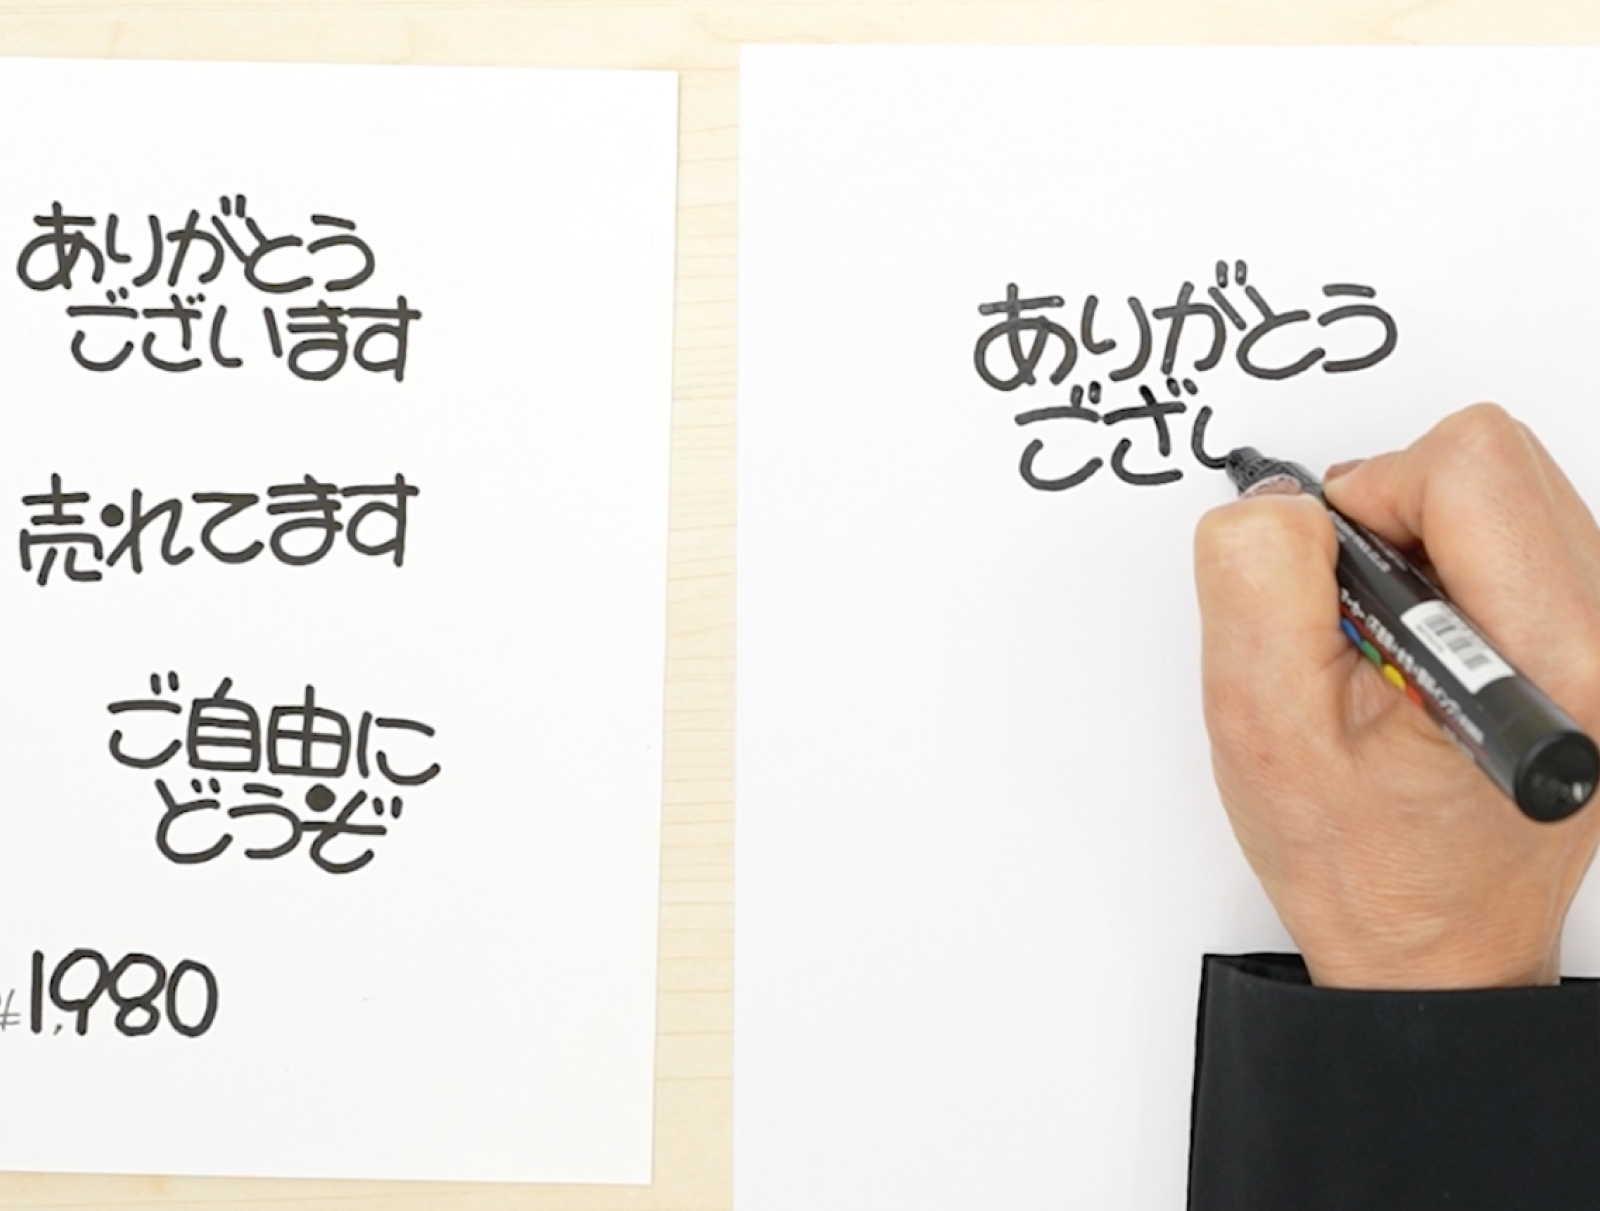 ありがとう
ございます
売れてます
ご自由に
どうぞ
¥1,980
ありがとう
ござい